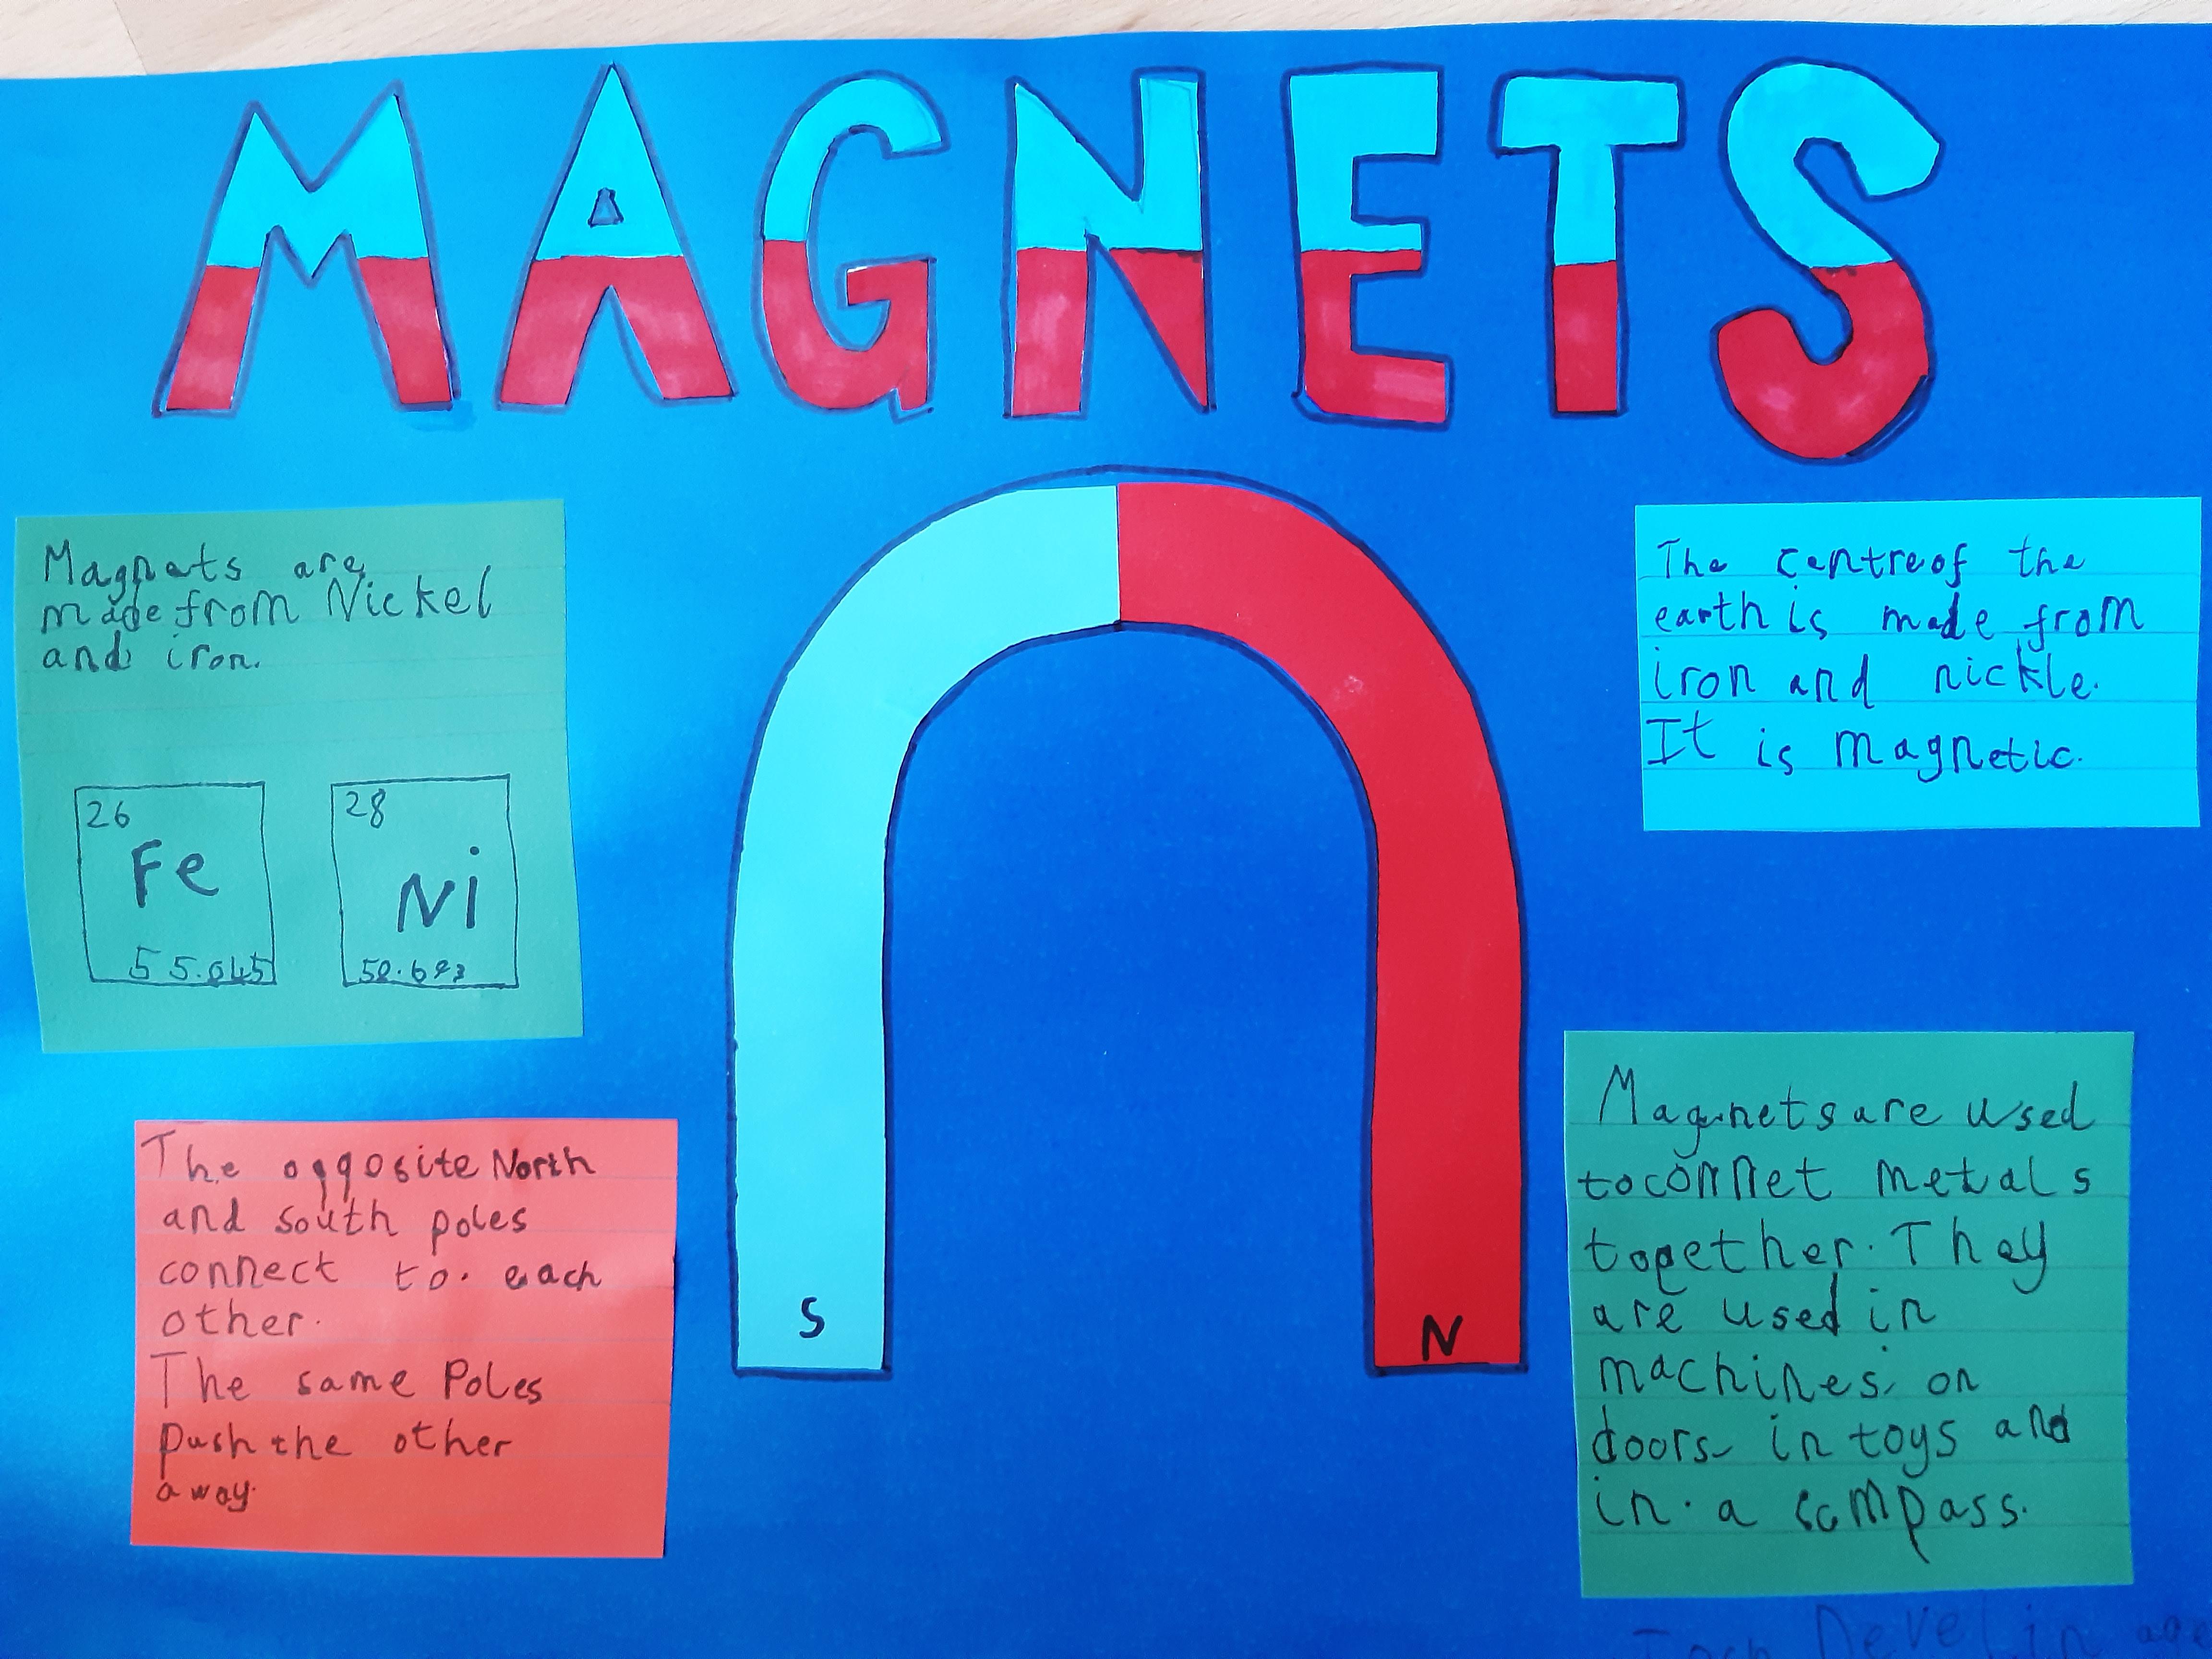 MAGNETS
Magnets are
made from Nickel
and iron.
26
Fe
55.845
28
Ni
58.693
The opposite North
and south poles
connect to. each
other.
The same Poles
push the other
away.
S
N
The centre of the
earth is made from
iron and nickle.
It is magnetic.
Magnets are used
to connet metals
together. They
are used in
machines, on
doors, in toys and
in. a compass.
Develin age